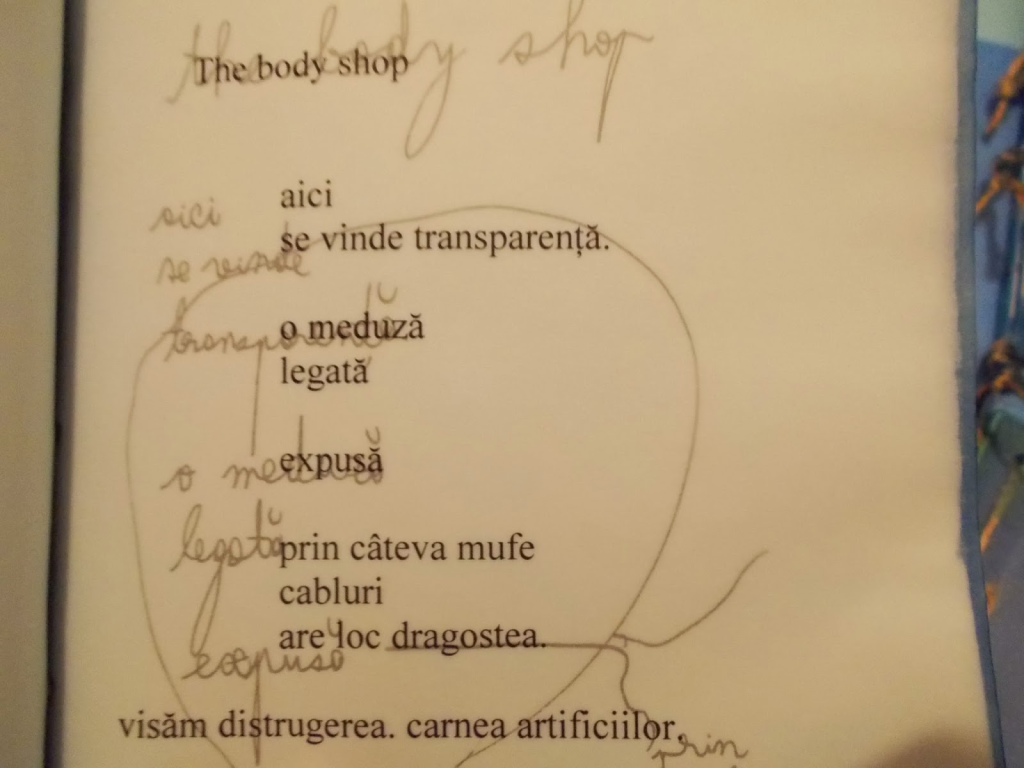 the body shop
The body shop
aici
se vinde transparență.
o meduză
legată
expusă
prin câteva mufe
cabluri
are loc dragostea.
visăm distrugerea. carnea artificiilor.
aici
se vinde
transparență
o meduză
legată
expusă
prin